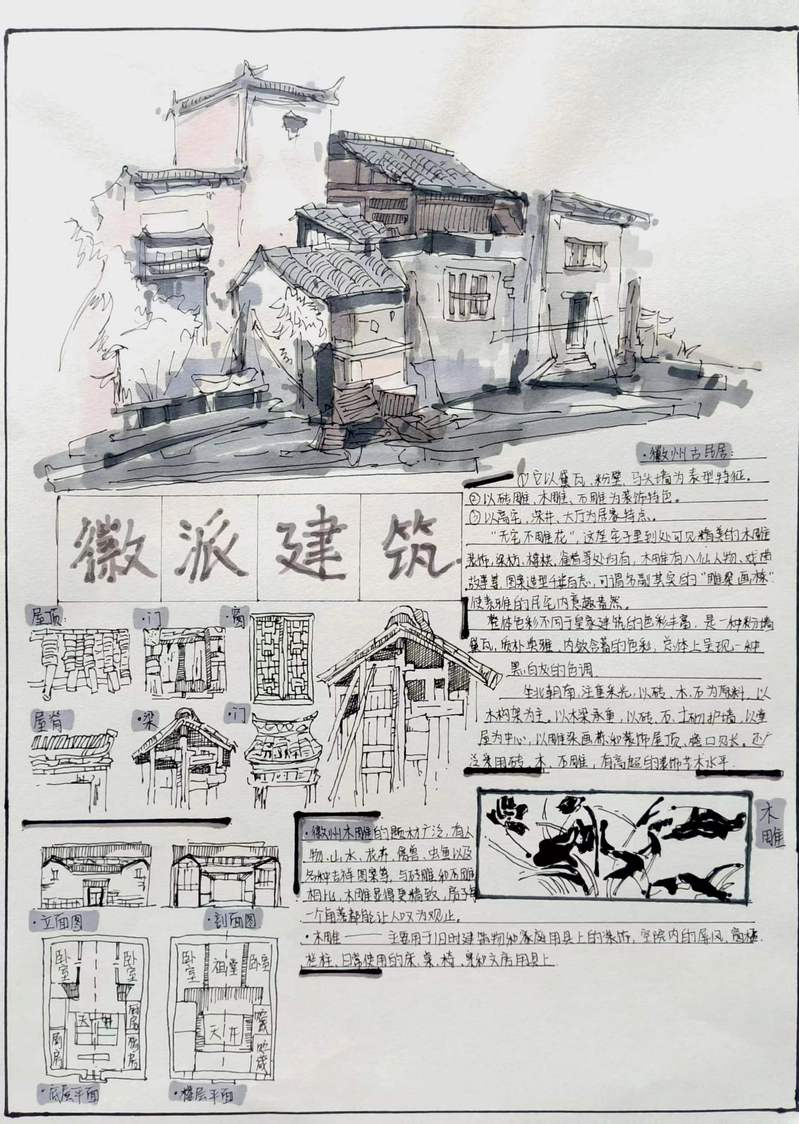 ·徽州古民居:
①它以黛瓦、粉壁、马头墙为表型特征。
②以砖雕、木雕、石雕为装饰特色。
③以高宅、深井、大厅为居家特点。
"无宅不雕花",这座宅子里到处可见精美的木雕
装饰,梁枋、
等处均有,木雕有八仙人物、戏曲
故事等,图案造型千姿百态,可谓名副其实的"雕梁画栋"
使素雅的民宅内意趣盎然。
整体色彩不同于皇家建筑的色彩丰富,是一种粉墙
黛瓦,质朴典雅、内敛含蓄的色彩,总体上呈现一种
黑白灰的色调
坐北朝南,注重采光,以砖、木、石为原料,以
木构架为主,以木梁承重,以砖、石、土砌护墙,以堂
屋为中心,以雕梁画栋和装饰屋顶、檐口见长,还广
泛采用砖、木、石雕,有高超的装饰艺术水平.
徽派建筑
屋顶:
·门
·窗
屋脊
·梁
·门
木雕
·徽州木雕的题材广泛,有人
物、山水、花卉、禽兽、虫鱼以及
各种吉祥图案等,与砖雕和石雕
相比,木雕显得更精致,房子每
一个角落都能让人叹为观止。
·木雕——主要用于旧时建筑物和家庭用具上的装饰,宅院内的屏风,窗楹
栏柱,日常使用的床、桌、椅、
和文房用具上
·立面图
·剖面图
卧室
卧室
天井
厨房
厨房
·底层平面
卧室
祖堂
卧室
天井
贮藏
·楼层平面